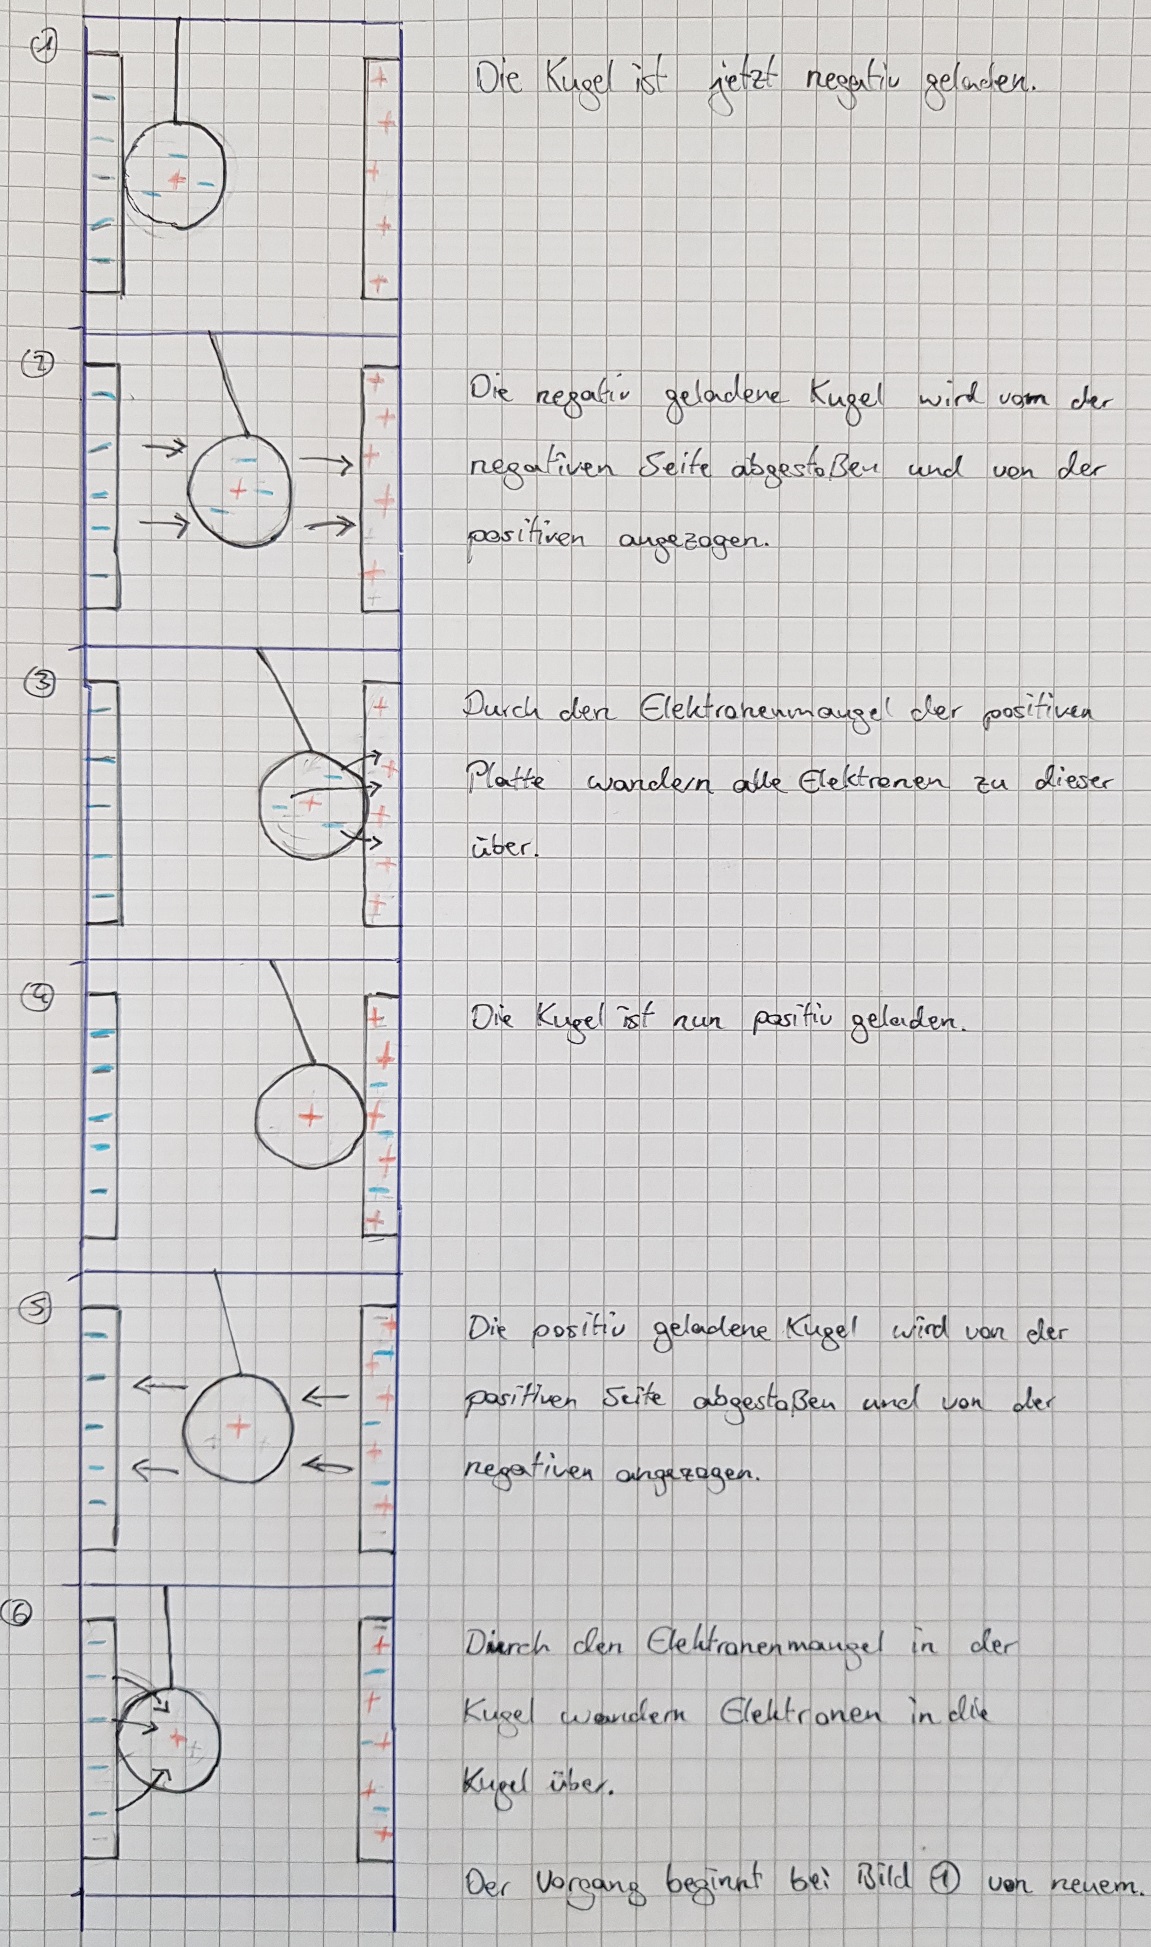 ① Die Kugel ist jetzt negativ geladen.
② Die negativ geladene Kugel wird vom der
negativen Seite abgestoßen und von der
positiven angezogen.
③ Durch den Elektronenmangel der positiven
Platte wandern alle Elektronen zu dieser
über.
④ Die Kugel ist nun positiv geladen.
⑤ Die positiv geladene Kugel wird von der
positiven Seite abgestoßen und von der
negativen angezogen.
⑥ Durch den Elektronenmangel in der
Kugel wandern Elektronen in die
Kugel über.
Der Vorgang beginnt bei Bild ① von neuem.